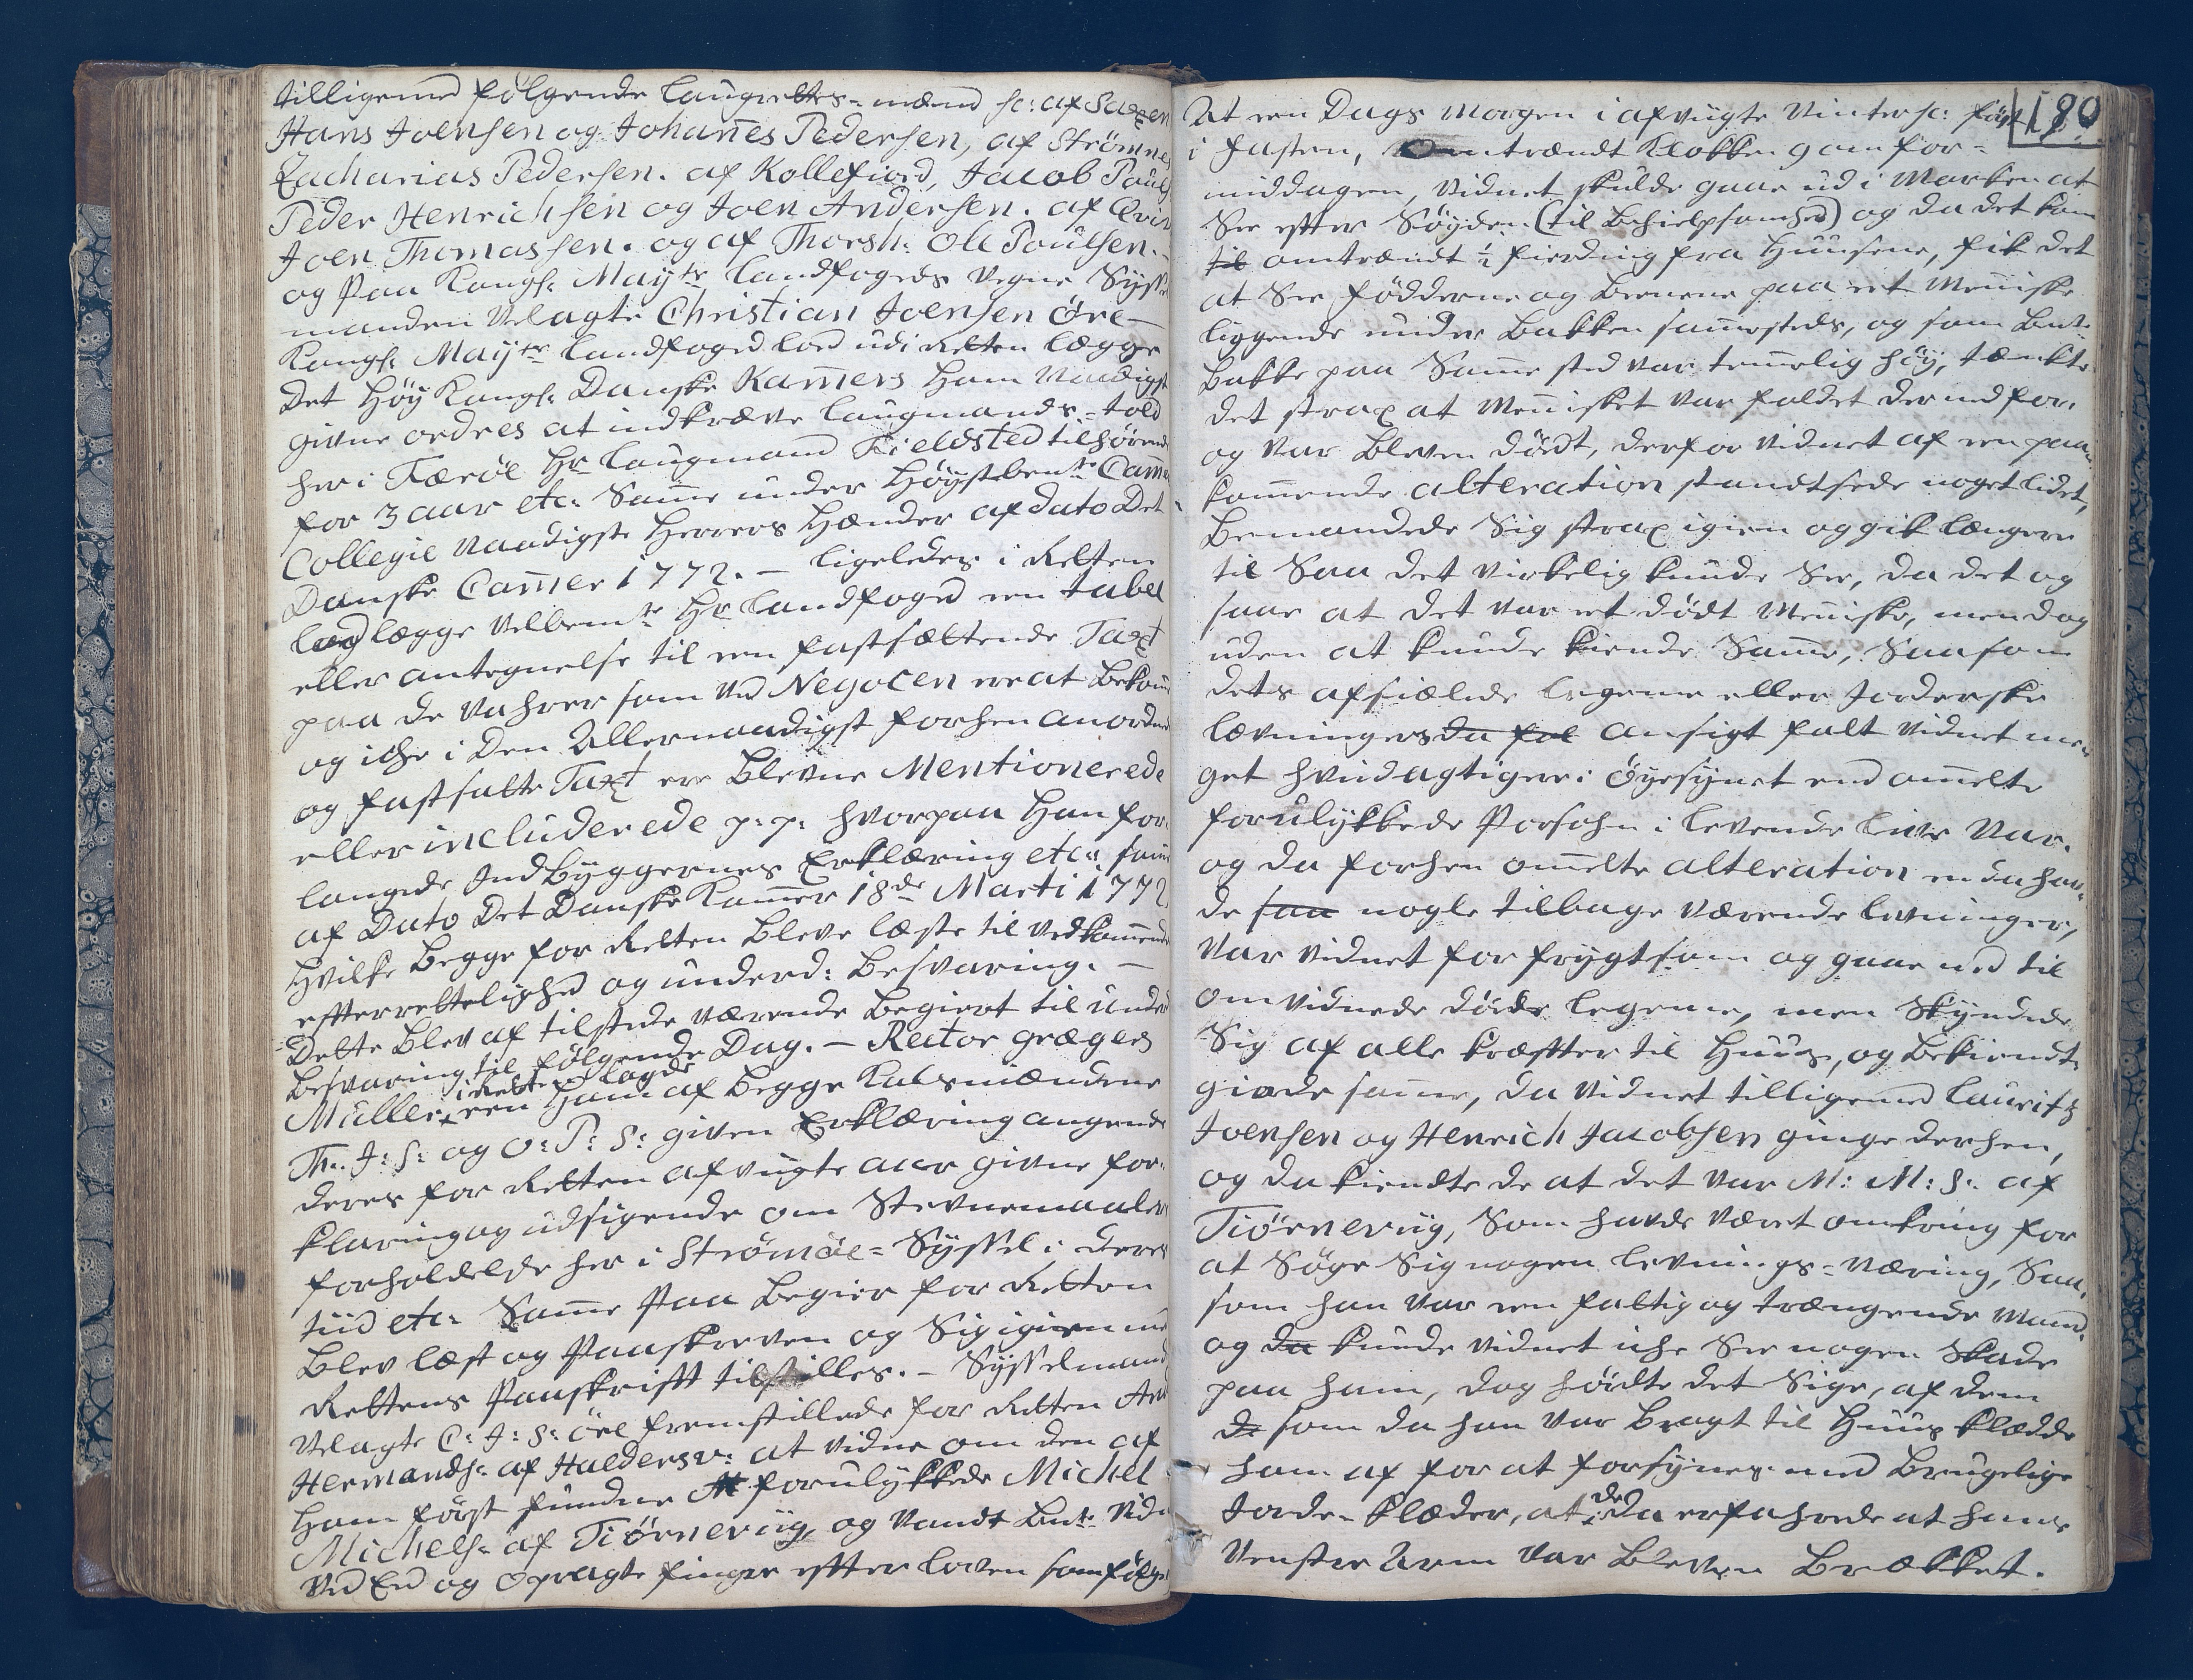 tilligemed følgende Laugrettes-mænd sc: af Saxen
Hans Joensen og Johan̄es Pedersen, af Strømnes
Zacharias Pedersen. af Kollefiord, Jacob Pouls
Peder Henrichsen og Joen Andersen. af Qviv
Joen Thomassen. og af Thorsh: Ole Poulsen.
og Paa Kongl: Mayts Landfogeds Vegne Sysse
manden Velagte Christian Joensen Øre —
Kongl: Mayts Landfoged lod udi Retten lægge
Det Høy Kongl: Danske Kam̄ers Ham Naadigst
givne ordres at indkræve Laugmands-told
her i Færøe Hr Laugmand Fieldsted tilhørende
for 3 aar etc: Sam̄e under Høystbemte Cam̄er
Collegie Naadigste Herrers Hænder af dato Det
Danske Cam̄er 1772. — ligeledes i Retten
lod lægge Velbemte Hr Landfoged een tabel
eller antegnelse til een fastsættende Taxt
paa de Vahrer som ved Negocen ere at bekom̄e
og iche i Den Allernaadigst forhen anordnede
og fastsatte Taxt ere blevne Mentionerede
eller includerede p: p: hvorpaa Han for-
langede Indbyggernes Erklæring etc: sam̄e
af Dato Det Danske Kam̄er 18de Marti 1772
Hvilke Begge for Retten bleve læste til vedkom̄ende
efterrettelighed og underd: Besvaring. —
Dette blev af tilstede værende begiert til under
Besvaring til følgende Dag. — Rector Græger
Müller i Retten lagde een Ham af begge Kalsmændene
Th: J: S: og O: P: S: given Erklæring angaaende
deres for Retten afvigte aar givne for-
klaring og udsigende om Stevnemaalers
forholdelse her i Strømøe-Syssel i deres
tiid etc: Sam̄e Paa begier for Retten
blev læst og Paaskreven og Sig igien med
Rettens Paaskrift tilstilles. — Sysselmand
Velagte C: J: S: Øre fremstillede for Retten
Hermands: af Haldersv: at vidne om den af
Ham først fundne forulykkede Michel
Michels: af Tiørneviig, og vandt bmte Vidne
ved Eed og opragte finger efter loven som følger
180
At een Dags Morgen i afvigte Vinter sc: først
i Fasten, omtrændt Klokken 9 om for-
middagen, vidnet skulde gaae ud i Marken at
See efter Søyden (til behielpsomhed) og da det kom
til omtrændt ½ fierding fra Huusene, fik det
at See fødderne og beenene paa eet Men̄iske
liggende under Bakken sam̄esteds, og som bmte
Bakke paa Sam̄e sted var tem̄elig høy, tænkte
det strax at Men̄isket var faldet der ned for,
og var bleven dødt, derfor vidnet af een paa-
kom̄ende alteration standtsede noget lidet,
Bemandede Sig strax igien og gik længere
til Saa det virkelig kunde See, da det og
saae at det var et dødt Men̄iske, men dog
uden at kunde kiende Sam̄e, Saasom
dets afsiælede legeme eller Jorderske
lævningers da fal ansigt falt vidnet me-
get hvidagtigere i Øyesynet end om̄elte
forulykkede Persohn i levende live var.
og da forhen om̄elte alteration enda hav-
de saa nogle tilbage værende levninger,
var vidnet for frygtsom og gaae ned til
omvidnede døde legeme, men Skyndede
Sig af alle kræfter til Huus, og bekiendt-
giorde sam̄e, da vidnet tilligemed Lauritz
Joensen og Henrich Jacobsen ginge derhen,
og da kiendte de at det var M: M: S: af
Tiørneviig, Som havde været omkring for
at Søge Sig nogen levnings-Næring, Saa-
som han var een fattig og trængende Mand.
og da kunde vidnet iche See nogen Skade
paa ham, dog hørte det Sige, af dem
de som da han var bragt til Huus klædde
ham af for at forsynes med brugelige
Jorde-klæder, at de da erfahrede at hans
venstre Arm var bleven Brækket.